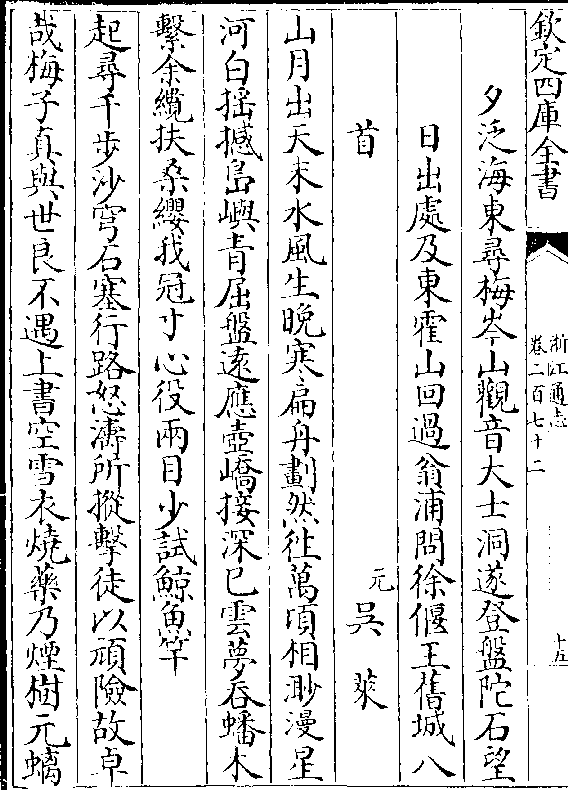 欽定四庫全書
浙江通志
卷二百七十二
十五
夕泛海東尋梅岑山觀音大士洞遂登盤陀石望
日出處及東霍山回過翁浦問徐偃王舊城八
首
元吳萊
山月出天末水風生晚寒扁舟劃然往萬頃相渺漫星
河白摇撼島嶼青屈盤遠應壺嶠接深已雲夢吞蟠木
繫余纜扶桑纓我冠寸心役兩目少試鯨魚竿
起尋千步沙穹石塞行路怒濤所摐擊徒以頑險故卓
哉梅子真與世良不遇上書空雪衣燒藥乃煙樹元螭